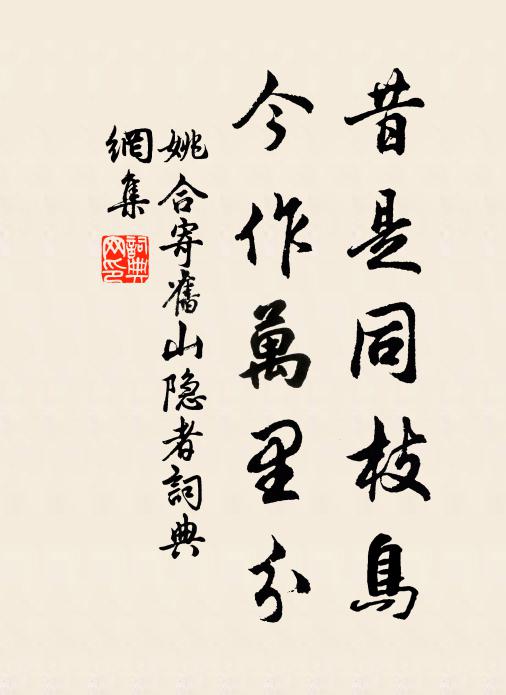 昔是同枝鳥
今作萬里分
姚合寄舊山隐者詞典
網集
詞典網印